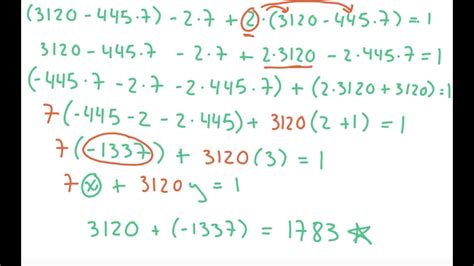 (3120-445·7) - 2·7 + 2·(3120-445·7) = 1
3120-445·7 - 2·7 + 2·3120 - 2·445·7 = 1
(-445·7 - 2·7 - 2·445·7) + (2·3120+3120) = 1
7(-445-2-2·445) + 3120(2+1) = 1
7(-1337) + 3120(3) = 1
7x + 3120y = 1
3120 + (-1337) = 1783 ☆